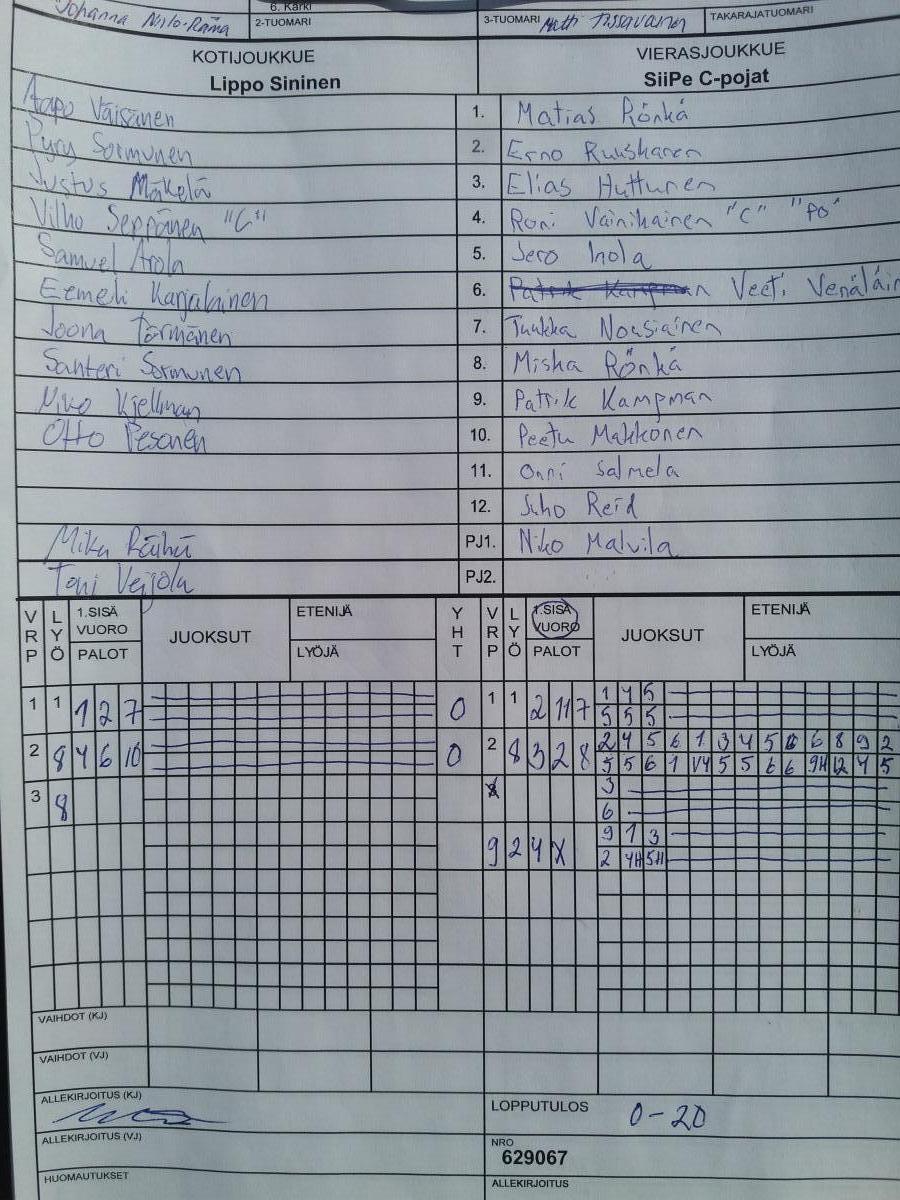 Johanna Niilo-Rämä 6. Kärki
2-TUOMARI 3-TUOMARI Matti TAKARAJATUOMARI
KOTIJOUKKUE VIERASJOUKKUE
Lippo Sininen SiiPe C-pojat
Aapo Väisänen 1. Matias Rönkä
Pyry Sormunen 2. Erno Ruuskanen
Justus Mäkelä 3. Elias Huttunen
Vilho Seppänen "C" 4. Roni Vainikainen "C" "PO"
Samuel Arola 5. Jero Inola
Eemeli Karjalainen 6. Patrik Kampman Veeti Venäläin
Joona Törmänen 7. Tuukka Nousiainen
Santeri Sormunen 8. Miska Rönkä
Niko Kjellman 9. Patrik Kampman
Otto Pesonen 10. Peetu Makkonen
11. Onni Salmela
12. Juho Reid
Mika Räihä PJ1. Niko Malvila
Toni Veijola PJ2.
VRP LYÖ 1.SISÄ VUORO PALOT JUOKSUT ETENIJÄ LYÖJÄ YHT VRP LYÖ 1.SISÄ VUORO PALOT JUOKSUT ETENIJÄ LYÖJÄ
1 1 1 2 7 0 1 1 2 11 7 1 4 5
5 5 5
2 8 4 6 10 0 2 8 3 2 8 2 4 5 6 1 3 4 5 6 6 8 9 2
5 5 6 1 V4 5 5 6 6 9H 12 4 5
3 8 3
6
9 2 4 X 9 1 3
2 4H 5H
VAIHDOT (KJ)
VAIHDOT (VJ)
ALLEKIRJOITUS (KJ) LOPPUTULOS 0-20
ALLEKIRJOITUS (VJ) NRO
629067
HUOMAUTUKSET ALLEKIRJOITUS